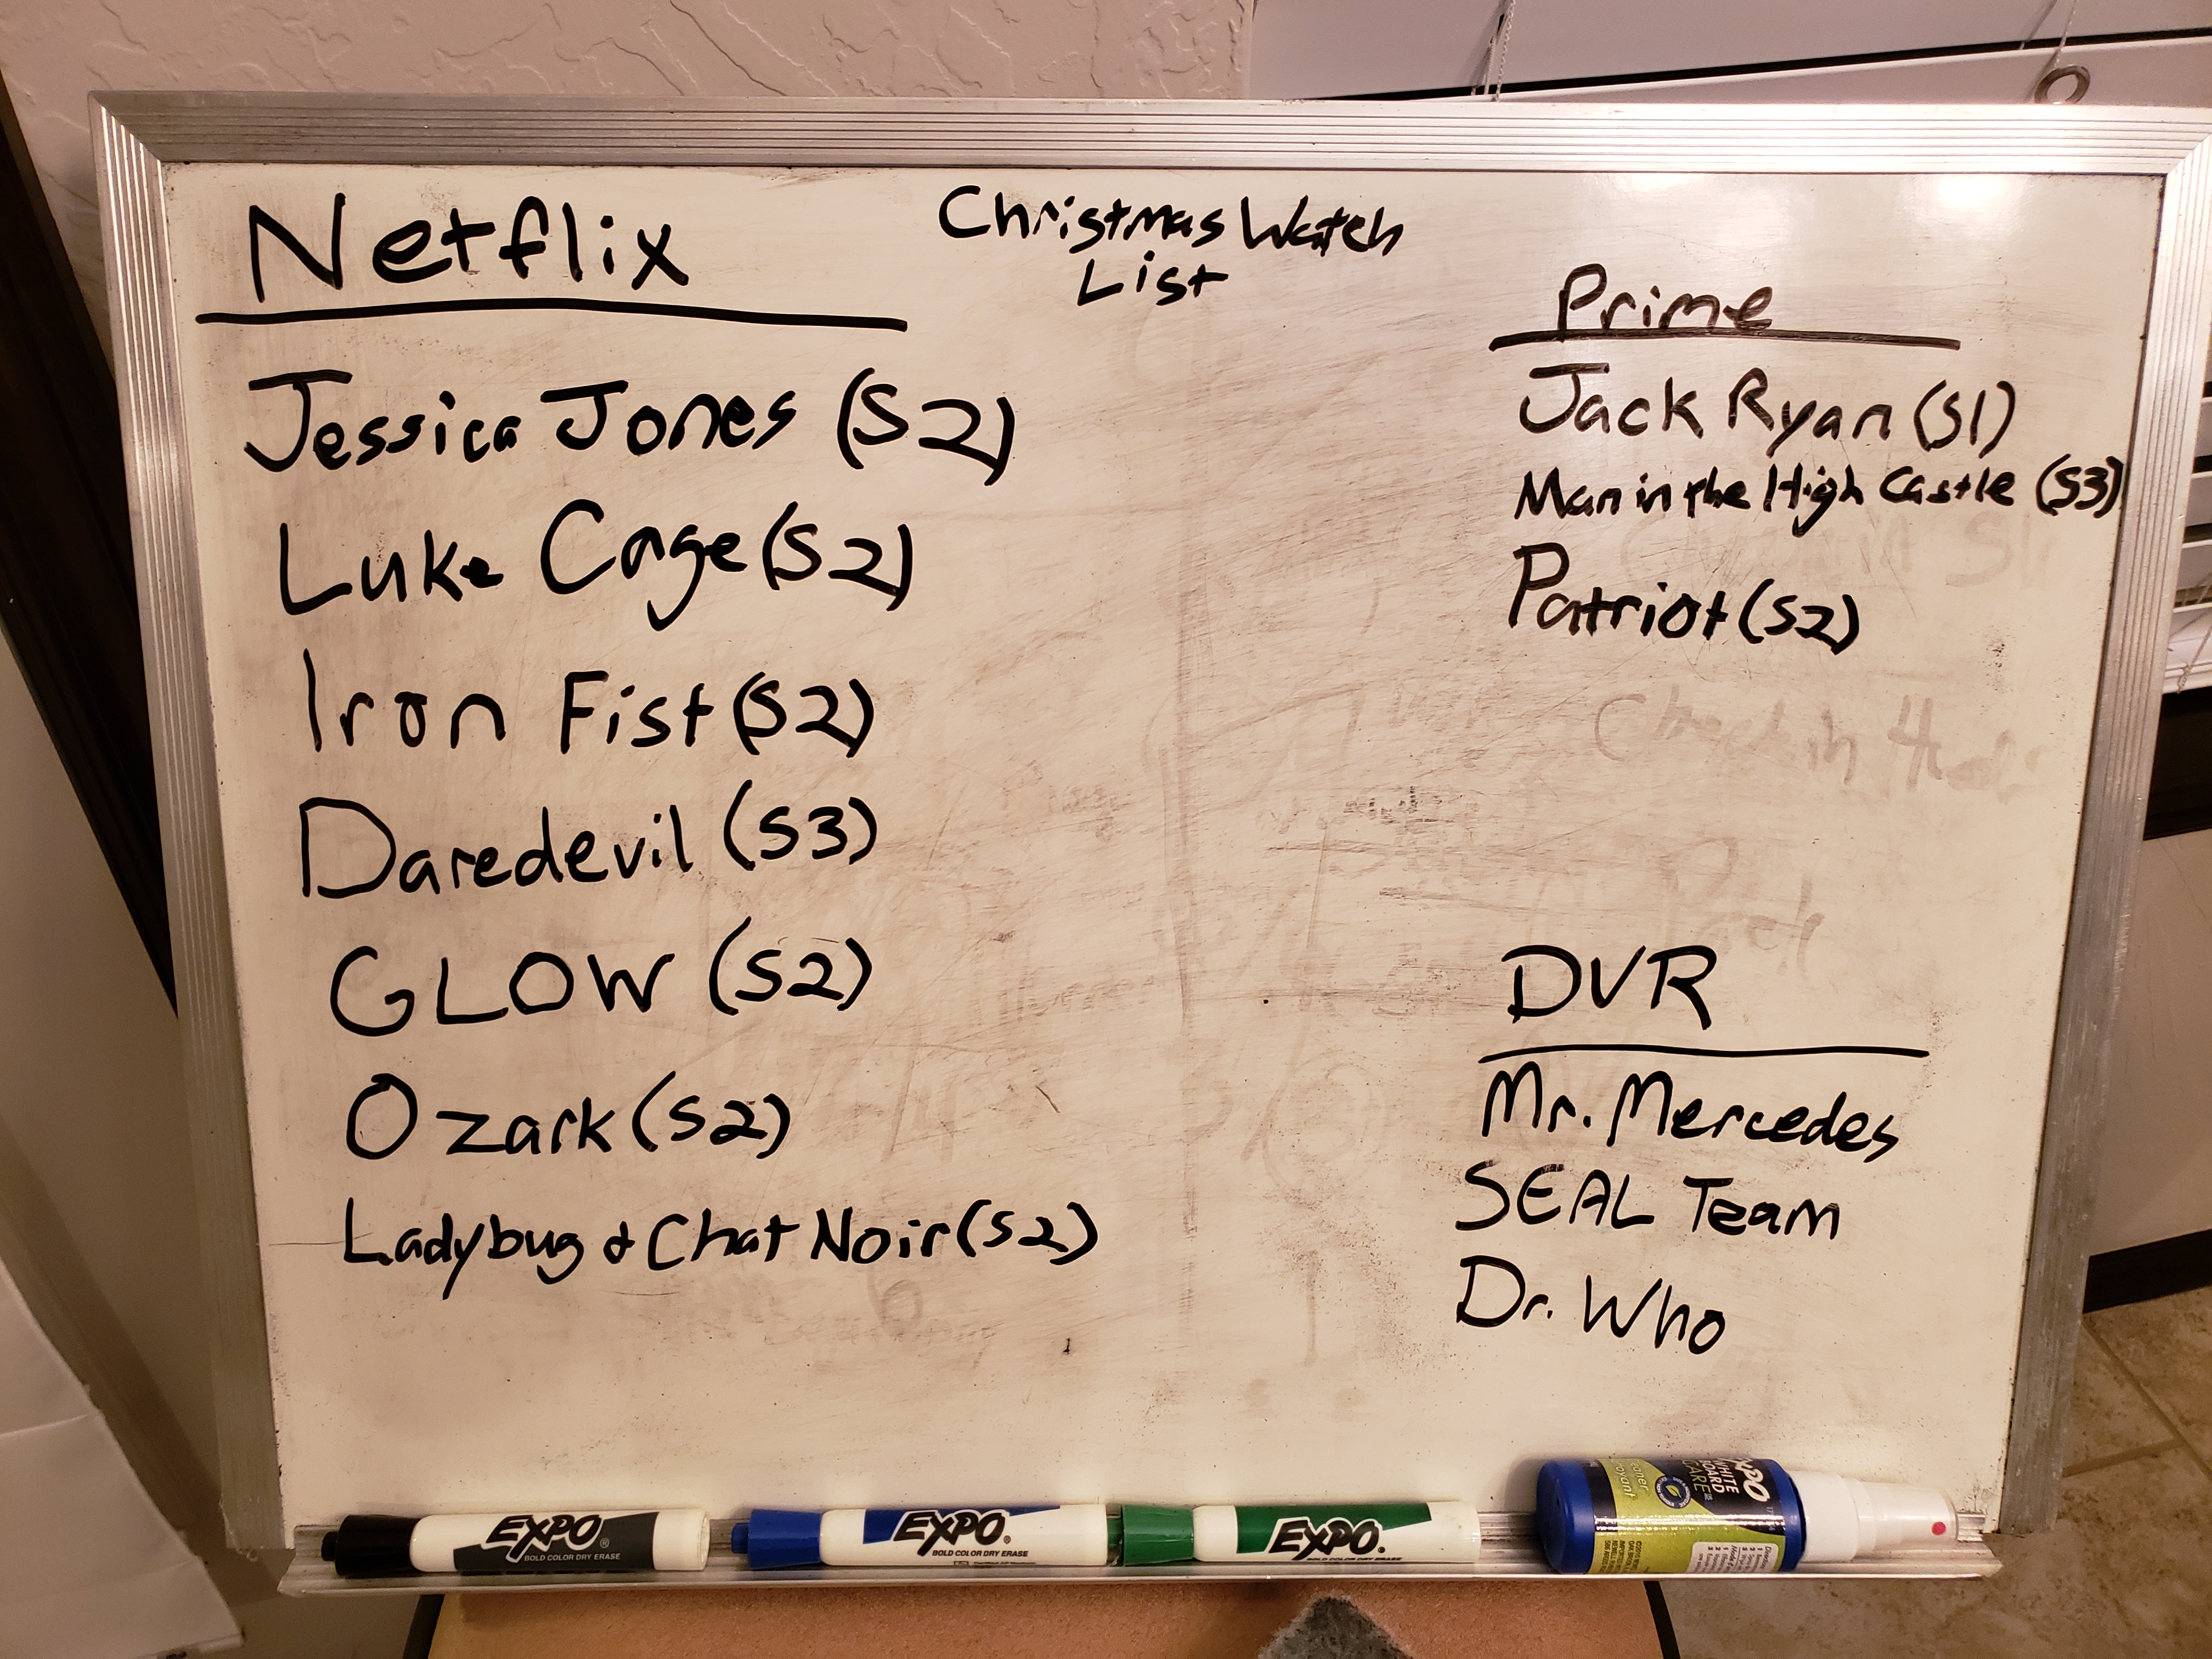 Christmas Watch
List
Netflix
Jessica Jones (S2)
Luke Cage (S2)
Iron Fist (S2)
Daredevil (S3)
GLOW (S2)
Ozark (S2)
Ladybug & Chat Noir (S2)
Prime
Jack Ryan (S1)
Man in the High Castle (S3)
Patriot (S2)
Check in
Pack
DVR
Mr. Mercedes
SEAL Team
Dr. Who
EXPO®
BOLD COLOR DRY ERASE
EXPO®
BOLD COLOR DRY ERASE
EXPO®
BOLD COLOR DRY ERASE
EXPO
WHITE
BOARD
CARE